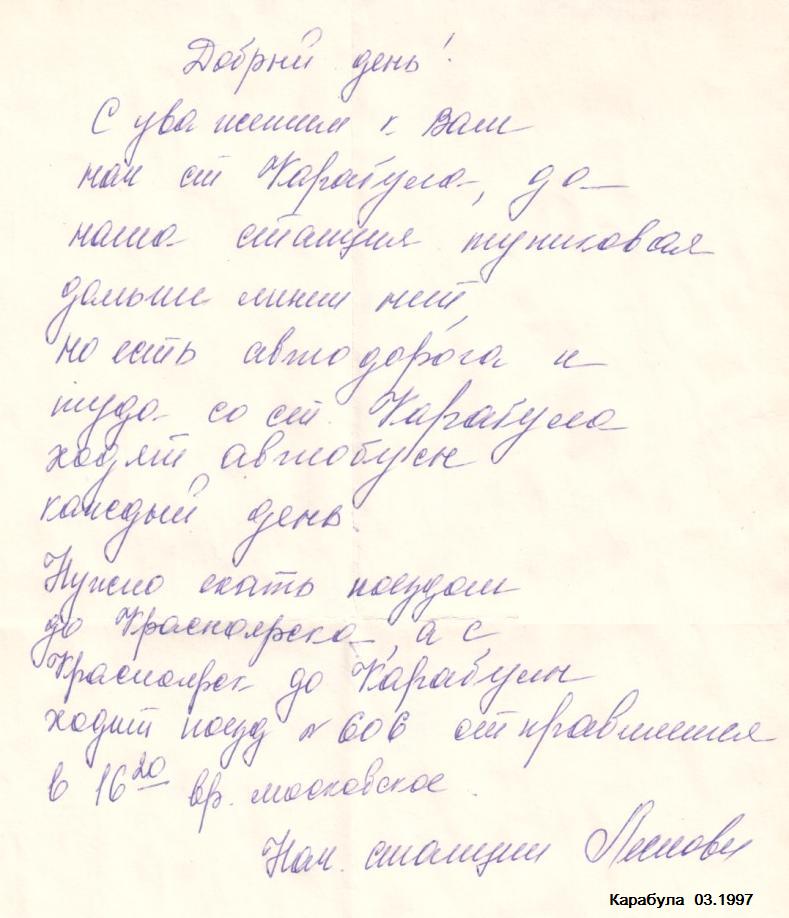 Добрый день!
С уважением к Вам
нач ст Карабула, да
наша станция тупиковая
дальше линии нет,
но есть автодорога и
туда со ст. Карабула
ходят автобусы
каждый день.
Нужно ехать поездом
до Красноярска, а с
Красноярск до Карабулы
ходит поезд № 606 отправляется
в 16 20 вр. московское.
Нач. станции
Карабула 03.1997